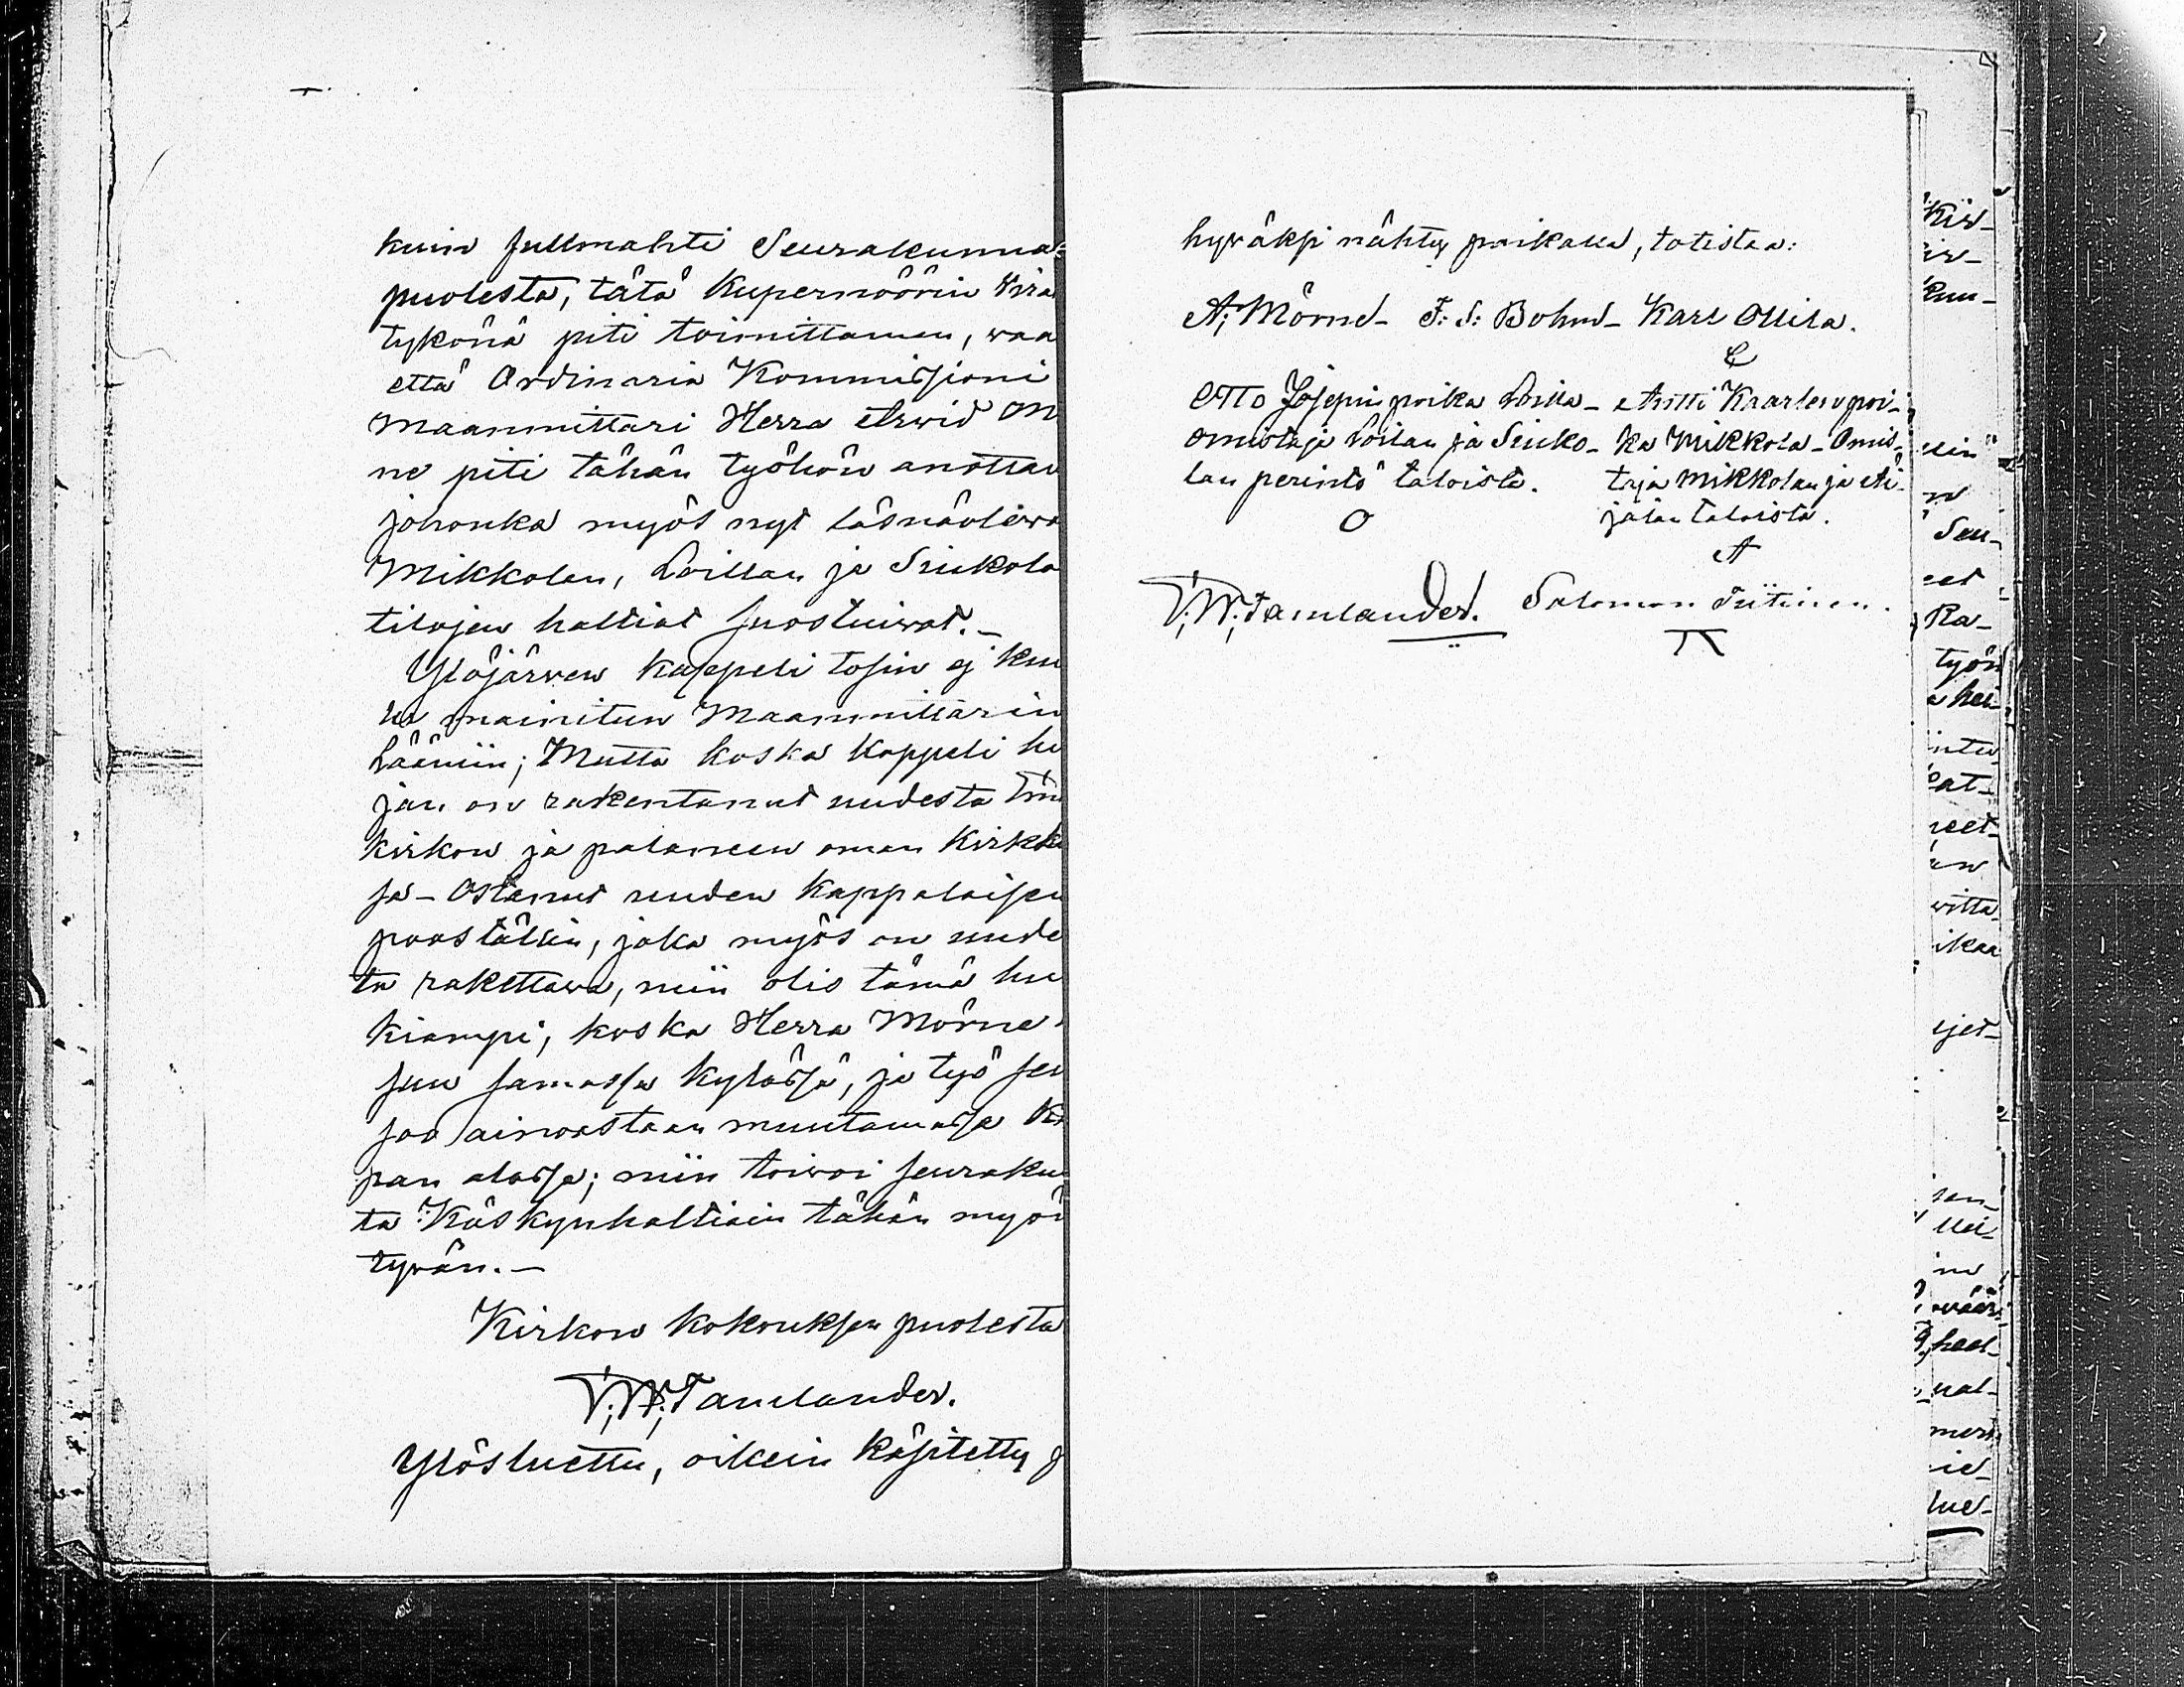 kuin fullmahti Seurakunna=
puolesta, tätä Kupernöörin Vira
tykönä piti toimittaman, waa
että Ordinaria Kommissioni
maanmittari Herra Arvid M
ne piti tähän työhön anottav
johonka myös nyt läsnäolewa
Mikkolan, Loillan ja Siukola
tilojen haltiat suostuivat. -
Ylöjärwen kappeli tosin ej kuu
lu mainitun Maanmittarin
Lääniin; Mutta koska kappeli hu
jan on rakentanut uudesta
kirkon ja palaneen oman Kirkk
sa - Ostanut uuden kappalaisen
pooställin, joka myös on uude
ta rakettawa, niin olis tämä hu
kiampi, koska Herra Mörne
suu samassa kylässä, ja työ sei
soo ainoastaan muutamassa
pan alassa; niin toiwoi seuraku
ta Käskynhaltiain tähän myön
tywän. -
Kirkon kokouksen puolesta
V; W; Tamlander.
Ylösluettu, oikein käsitetty j
hywäksi nähty paikalla, totistaa:
A; Mörne - F: S: Bohm - Karl Ollila.
Otto Josepin poika Loilla - Antti Kaarlen poi-
omistaja Loilan ja Siuko- ka Mikkola - Omis-
lan perintö taloista. taja Mikkolan ja
O jälän taloista.
A
V; W; Tamlander. Salomon Tiitinen.
Kir-
kuu-
Seu-
Ra-
työn
a hei
witta
ikaa